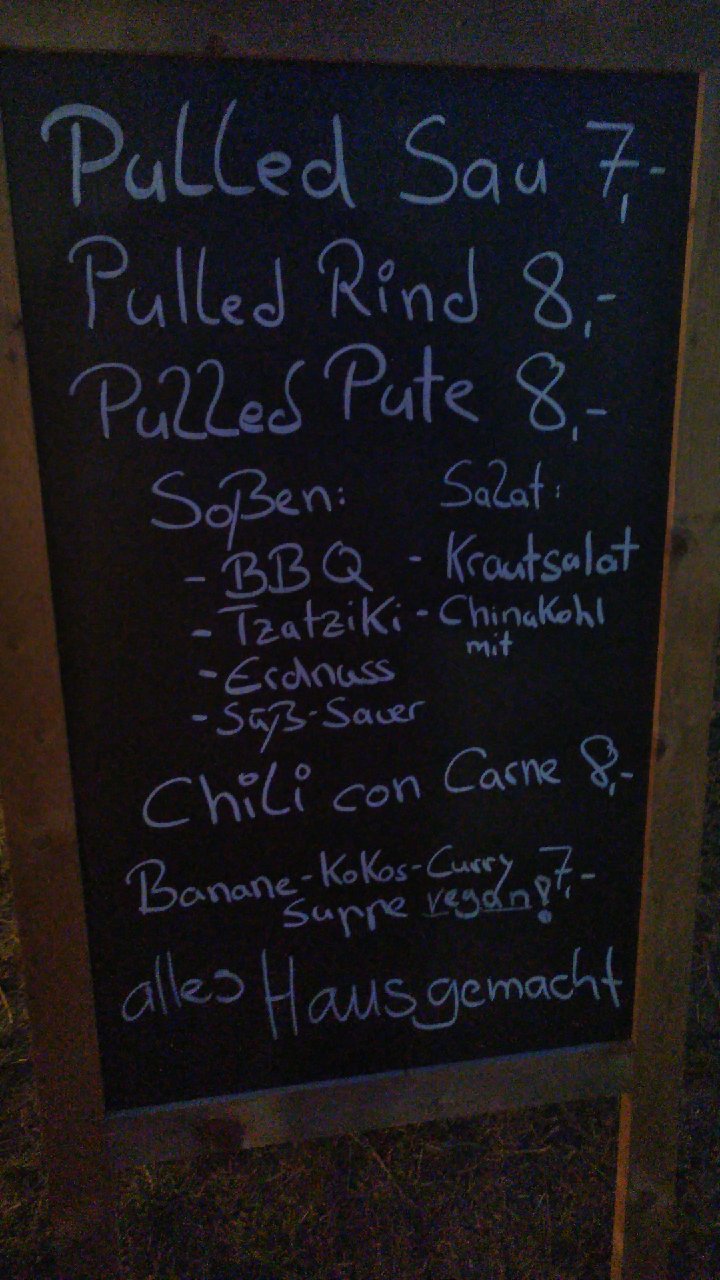 Pulled Sau 7,-
Pulled Rind 8,-
Pulled Pute 8,-
Soßen:
- BBQ
- Tzatziki
- Erdnuss
- Süß-Sauer
Salat:
- Krautsalat
- Chinakohl
mit
Chili con Carne 8,-
Banane-Kokos-Curry 7,-
Suppe vegan!
alles Hausgemacht